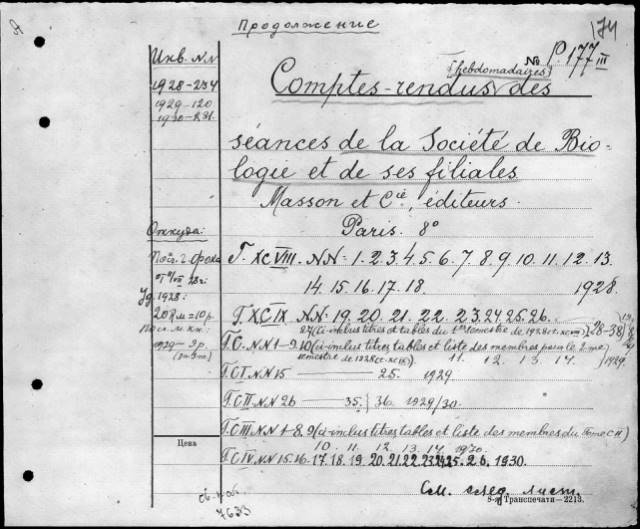 Продолжение
174
№ P.177 III
Инв. NN
1928-234
1929-120
1930-231
(hebdomadaires)
Comptes-rendus des
séances de la Société de Bio-
logie et de ses filiales
Masson et Cie, éditeurs.
Paris. 8°
Откуда:
1928:
20 Rм=10 р.
1929-9 р.
T. XCVIII. NN=1.2.3.4.5.6.7.8.9.10.11.12.13.
14.15.16.17.18. 1928.
T. XCIX NN. 19.20.21.22.23.24.25.26.
27(ci-inclus titres et tables du 1er semestre de 1928 t. XCIX) (28-38)
T.C. NN 1-9.10 (ci-inclus titres, tables et liste des membres pour le 2-me
semestre de 1928 t. XCIX). 11. 12. 13. 14. 1929.
T. CI. NN 15 — 25. 1929
T. CII. NN 26 — 35. 36. 1929/30.
T. CIII. NN 1-8.9 (ci-inclus titres, tables et liste des membres du Tome CII)
10. 11. 12. 13. 14. 1930.
T. CIV. NN 15.16.17.18.19.20.21.22.23.24.25.26.1930.
Цена
См. след. лист.
7633
8-я Транспечати—2213.